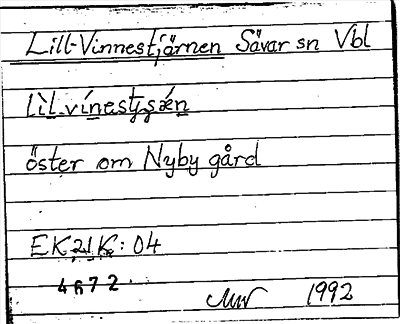 Lill-Vinnestjärnen Sävar sn Vbl
öster om Nyby gård
EK21K:04
4672.
1992